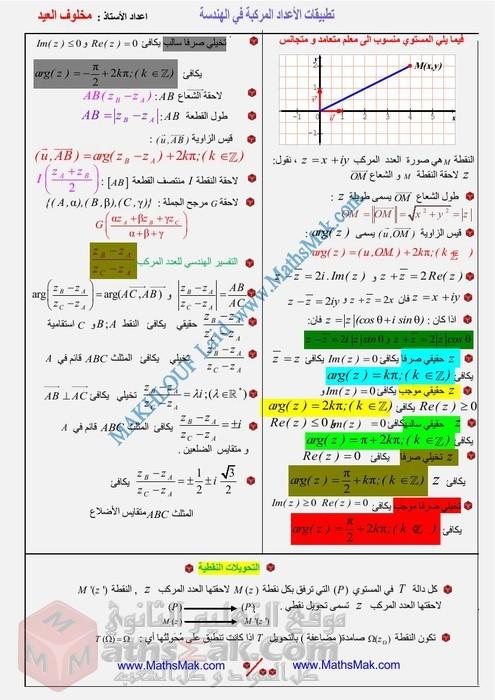 تطبيقات الأعداد المركبة في الهندسة
اعداد الأستاذ : مخلوف العيد
فيما يلي المستوي منسوب الى معلم متعامد و متجانس
M(x,y)
النقطة M هي صورة العدد المركب z = x + iy ، نقول:
z لاحقة النقطة M و الشعاع OM
طول الشعاع OM يسمى طويلة z :
OM = |OM| = √x² + y² = |z|
قيس الزاوية (u,OM) يسمى arg(z) :
arg(z) = (u,OM) + 2kπ;(k ∈ ℤ)
z − z̄ = 2i.Im(z) و z + z̄ = 2Re(z)
z = x + iy فان z + z̄ = 2x و z − z̄ = 2iy
اذا كان : z = |z|(cosθ + i sinθ) فان:
z − z̄ = 2i|z|sinθ و z + z̄ = 2|z|cosθ
z حقيقي صرفا يكافئ Im(z) = 0 يكافئ z̄ = z
يكافئ arg(z) = kπ;(k ∈ ℤ)
z حقيقي موجب يكافئ Im(z) = 0 و
Re(z) ≥ 0 يكافئ arg(z) = 2kπ;(k ∈ ℤ)
z حقيقي سالب يكافئ Im(z) = 0 و Re(z) ≤ 0
يكافئ arg(z) = π + 2kπ;(k ∈ ℤ)
z تخيلي صرفا يكافئ Re(z) = 0
يكافئ arg(z) = π/2 + kπ;(k ∈ ℤ)
z تخيلي صرفا موجب يكافئ Re(z) = 0 و Im(z) ≥ 0
يكافئ arg(z) = π/2 + 2kπ;(k ∈ ℤ)
تخيلي صرفا سالب يكافئ Re(z) = 0 و Im(z) ≤ 0
يكافئ arg(z) = −π/2 + 2kπ;(k ∈ ℤ)
لاحقة الشعاع AB : AB(z_B − z_A)
طول القطعة AB : AB = |z_B − z_A|
قيس الزاوية (u,AB) :
(u,AB) = arg(z_B − z_A) + 2kπ;(k ∈ ℤ)
لاحقة النقطة I منتصف القطعة [AB] : I((z_A + z_B)/2)
لاحقة G مرجح الجملة : {(A,α),(B,β),(C,γ)}
G((αz_A + βz_B + γz_C)/(α + β + γ))
التفسير الهندسي للعدد المركب (z_B − z_A)/(z_C − z_A)
|(z_B − z_A)/(z_C − z_A)| = AB/AC و arg((z_B − z_A)/(z_C − z_A)) = (AC,AB)
(z_B − z_A)/(z_C − z_A) حقيقي يكافئ النقط A;B و C استقامية
(z_B − z_A)/(z_C − z_A) تخيلي يكافئ المثلث ABC قائم في A
(z_B − z_A)/(z_C − z_A) = λi;(λ ∈ ℝ*) تخيلي يكافئ AB ⊥ AC
(z_B − z_A)/(z_C − z_A) = ±i يكافئ المثلث ABC قائم في A
و متقايس الضلعين .
(z_B − z_A)/(z_C − z_A) = ±1/2 ± i√3/2 يكافئ
المثلث ABC متقايس الأضلاع
التحويلات النقطية
كل دالة T في المستوي (P) التي ترفق بكل نقطة M(z) لاحقتها العدد المركب z ، النقطة M'(z')
لاحقتها العدد المركب z' تسمى تحويل نقطي .
(P) → (P)
M(z) → M'(z')
تكون النقطة Ω(z_Ω) صامدة (مضاعفة) بالتحويل T اذا كانت تنطبق على محولتها أي : T(Ω) = Ω
www.MathsMak.com
www.MathsMak.com
MAKHLOUF Laid www.MathsMak.com
موقع التعليم الثانوي